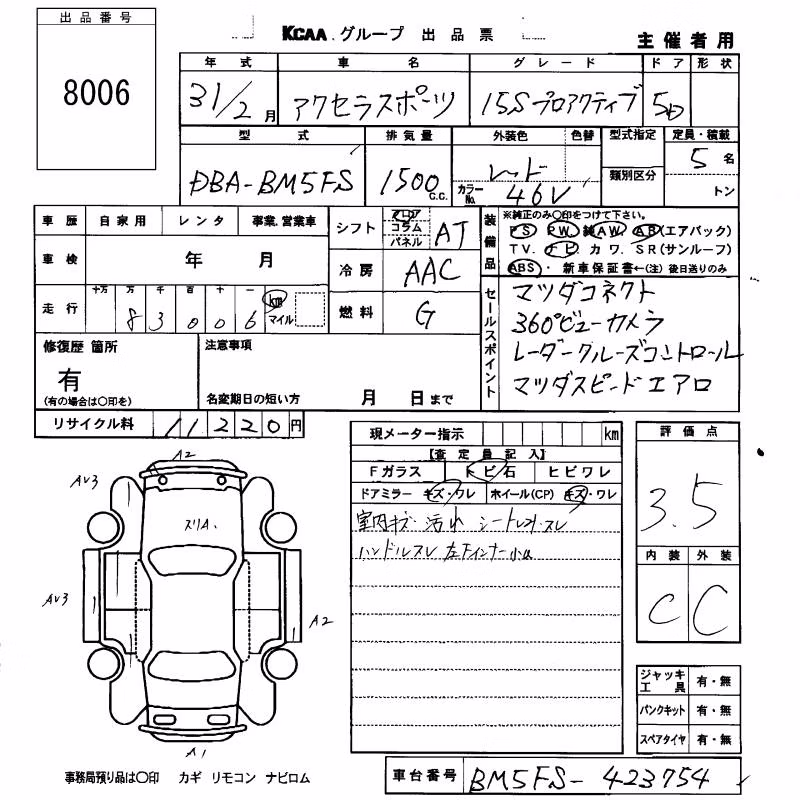 出品番号
8006
KCAA グループ 出品票
主催者用
年式 車名 グレード ドア 形状
31/2月 アクセラスポーツ 15Sプロアクティブ 5D
型式 排気量 外装色 色替 型式指定 定員・積載
DBA-BM5FS 1500 C.C. レッド 類別区分 5名
カラーNo. 46V トン
車歴 自家用 レンタ 事業.営業車
シフト フロア コラム パネル AT
装備品
※純正のみ○印をつけて下さい。
PS PW 純AW AB(エアバック)
TV. ナビ カワ. SR(サンルーフ)
ABS・ 新車保証書←(注)後日送りのみ
車検 年 月
冷房 AAC
走行 十万 万 千 百 十 一
83006 km マイル
燃料 G
セールスポイント
マツダコネクト
360°ビューカメラ
レーダークルーズコントロール
マツダスピードエアロ
修復歴 箇所
有
(有の場合は○印を)
注意事項
名変期日の短い方 月 日まで
リサイクル料 11220円
現メーター指示 km
【査定員記入】
Fガラス トビ石 ヒビワレ
ドアミラー キズ・ワレ ホイール(CP) キズ・ワレ
室内キズ・汚れ シート スレ
ハンドルスレ 左Fインナー小
評価点
3.5
内装 外装
C C
A2
AV3
スリA.
AV3
A2
A1
ジャッキ工具 有・無
パンクキット 有・無
スペアタイヤ 有・無
事務局預り品は○印 カギ リモコン ナビロム
車台番号 BM5FS-423754